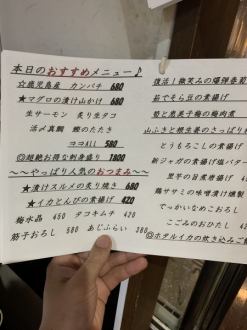 本日のおすすめメニュー♪
☆鹿児島産 カンパチ 680
★マグロの漬け山かけ 680
生サーモン 炙り生タコ
活〆真鯛 鰹のたたき
ココALL 580
◎超絶お得な刺身盛り 1800
～～やっぱり人気のおつまみ～～
★漬けスルメの炙り焼き 680
★イカとんびの素揚げ 420
梅水晶 450 タコキムチ 420
筋子おろし 580 あじふらい 380
復活！微笑みの爆弾春
茹でそら豆の素揚げ
筍と
山ふきと根生姜のさっぱり
とうもろこしの素揚げ
新ジャガの素揚げ塩バター
里芋の旨煮唐揚げ
鶏ササミの味噌漬け燻製
でっかいなめこおろし
ごごみのおひたし
◎ホタルイカの炊き込みご